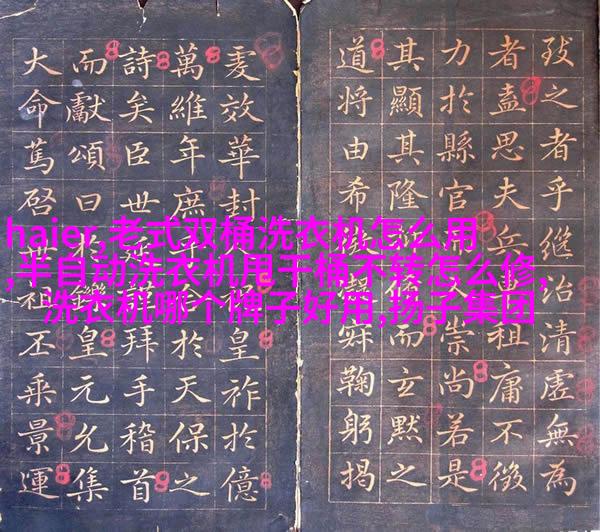 致之者乎繼治清虛無為
者盍思夫兵祖庸不徵
力於縣官文崇尚若是
其顯其隆而玄默之
道將由希鞠躬揭
效華封皇祚於億
萬維年庶於天保之
詩矣臣世拜手稽首
而獻頌曰於鑠皇元允集
大命篤啓世祖丕乘景運
haier,老式双桶洗衣机怎么用
,半自动洗衣机甩干桶不转怎么修,
洗衣机哪个牌子好用,扬子集团